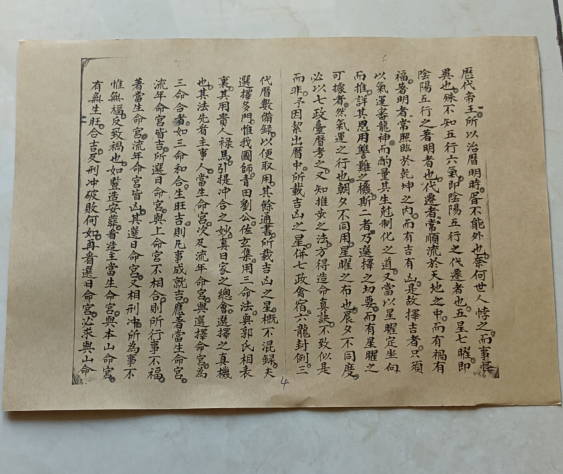 歷代帝王所以治曆明時皆不能外也奈何世人悖之而事怪
異也殊不知五行六氣即陰陽五行之代遷者也五星七曜即
陰陽五行之著明者也代遷者常順流於天地之中而有禍有
福著明者常照臨於乾坤之內而有吉有凶是故擇吉者只須
以氣運審龍神而酌量其生尅制化之道又當以星曜定坐向
而推詳其恩用讐難之機斯二者乃選擇之切要而有星曜之
可據者然氣運之行也朝夕不同用星曜之布也晨夕不同度
必以七政臺曆考之又知推变之法方得造命真訣不致似是
而非予因絜出曆中所載吉凶之星併七政會宿六龍封倒三
代曆數備録以便取用其餘通書所載吉凶之星概不混録夫
選擇多門惟我國師青田劉公佐玄集用三命法與郭氏相表
裏其用貴人禄馬引提冲合之妙真日家之總會選擇之真機
也其法先看主事人當生命宮次及流年命宮與選擇命宮為
三命合畨如三命和合生旺吉則凡事成就吉應若當生命宮
流年命宮皆吉所選日命宮與上命宮不相合則所行事不福
若當生命宮流年命宮皆凶其選日命宮又相刑冲所為事不
惟無福反致禍也如豎造安葬看造主當生命宮與本山命宮
有無生旺合吉及刑冲破敗何如再看選日命宮必求與山命
4